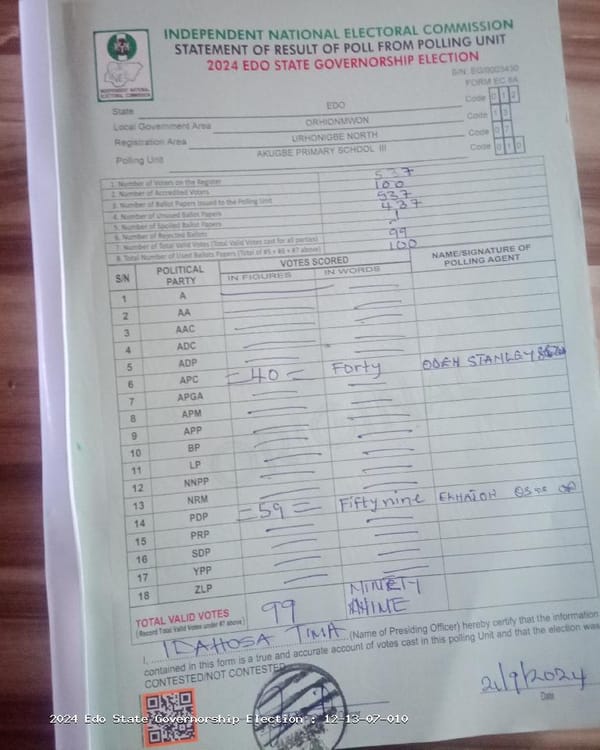 INDEPENDENT NATIONAL ELECTORAL COMMISSION
STATEMENT OF RESULT OF POLL FROM POLLING UNIT
2024 EDO STATE GOVERNORSHIP ELECTION
S/N: EG/0003430
FORM EC 8A
INDEPENDENT NATIONAL ELECTORAL COMMISSION
State EDO Code 012
Local Government Area ORHIONMWON Code 13
Registration Area URHONIGBE NORTH Code 07
Polling Unit AKUGBE PRIMARY SCHOOL III Code 010
1. Number of Voters on the Register 537
2. Number of Accredited Voters 100
3. Number of Ballot Papers Issued to the Polling Unit 537
4. Number of Unused Ballot Papers 437
5. Number of Spoiled Ballot Papers
6. Number of Rejected Ballots
7. Number of Total Valid Votes (Total Valid Votes cast for all parties) 99
8. Total Number of Used Ballots Papers (Total of #5 + #6 + #7 above) 100
S/N POLITICAL PARTY VOTES SCORED NAME/SIGNATURE OF POLLING AGENT
IN FIGURES IN WORDS
1 A
2 AA
3 AAC
4 ADC
5 ADP
6 APC =40= Forty ODEH STANLEY
7 APGA
8 APM
9 APP
10 BP
11 LP
12 NNPP
13 NRM
14 PDP =59= Fifty nine
15 PRP
16 SDP
17 YPP
18 ZLP
TOTAL VALID VOTES 99 NINETY NINE
(Record Total Valid Votes under #7 above)
I, IDAHOSA TINA (Name of Presiding Officer) hereby certify that the information
contained in this form is a true and accurate account of votes cast in this polling Unit and that the election was
CONTESTED/NOT CONTESTED
21/9/2024
Date
2024 Edo State Governorship Election : 12-13-07-010